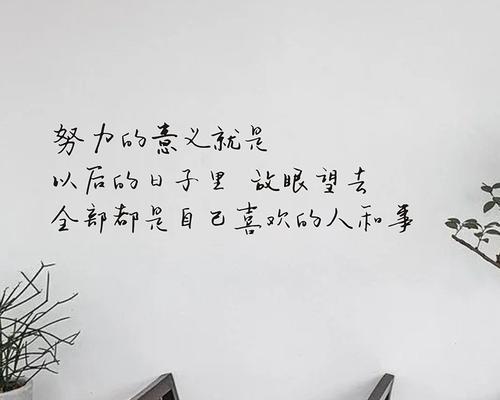 努力的意义就是
以后的日子里 放眼望去
全部都是自己喜欢的人和事